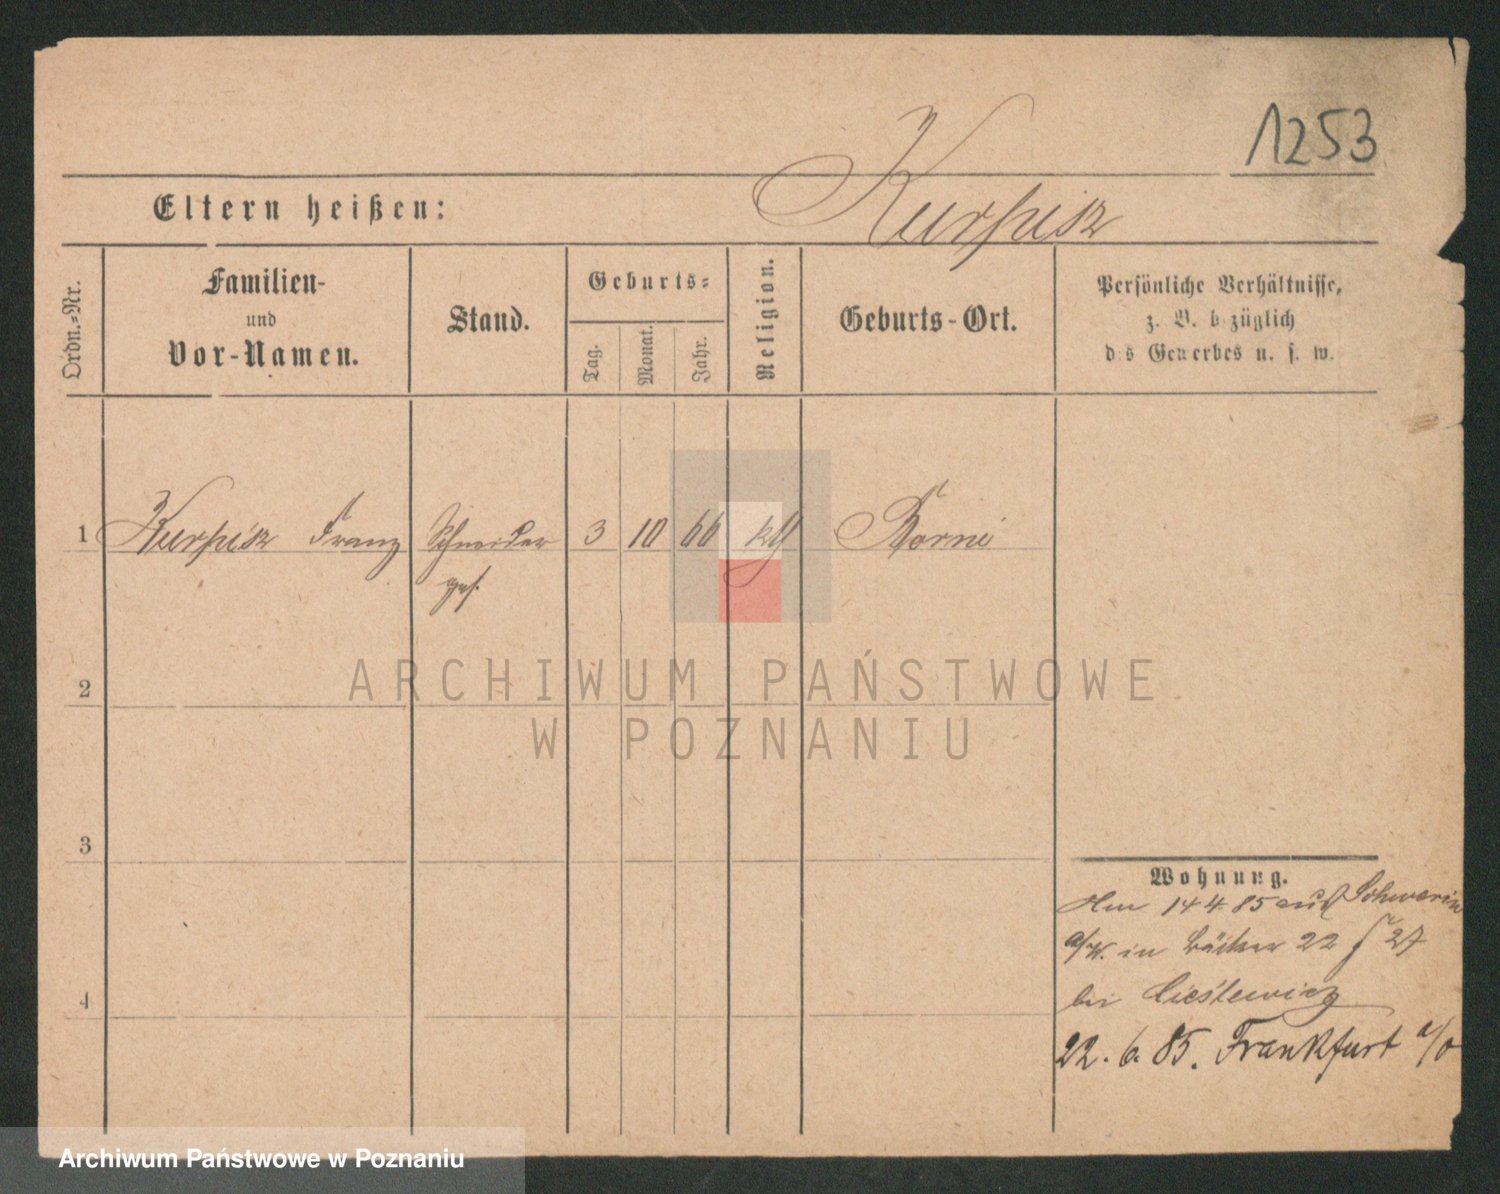 1253
Eltern heißen:
Kurpisz
Ordn.-Nr.
Familien-
und
Vor-Namen.
Stand.
Geburts-
Tag.
Monat.
Jahr.
Religion.
Geburts-Ort.
Persönliche Verhältnisse,
z. B. bezüglich
des Gewerbes u. s. w.
1 Kurpisz Franz Schneider 3 10 66 Borni
ges.
2
3
4
Wohnung.
14 4. 85 aus Schwerin
a/W. in Bäcker 22 27
bei Cieślewicz
22. 6. 85. Frankfurt a/o
ARCHIWUM PAŃSTWOWE
W POZNANIU
Archiwum Państwowe w Poznaniu